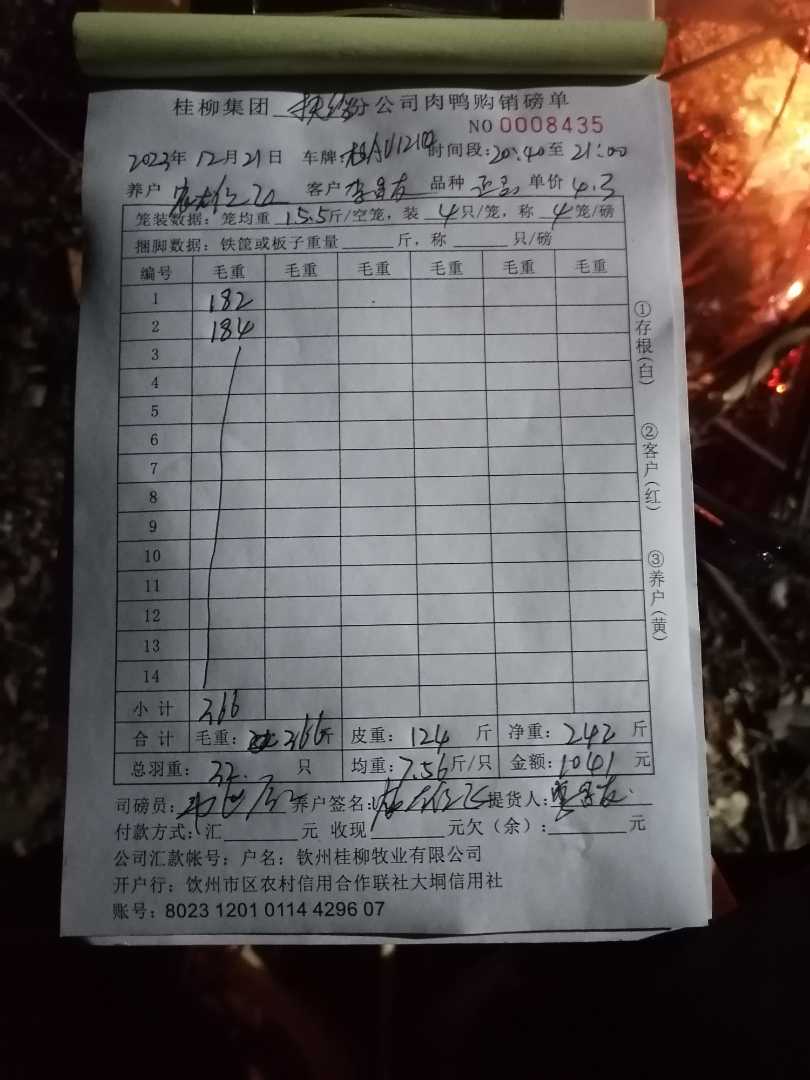 桂柳集团 分公司肉鸭购销磅单
NO 0008435
2023年 12月 21日 车牌: 时间段:20:40至 21:00
养户 客户 李昌友 品种 正品 单价 4.3
笼装数据: 笼均重 15.5斤/空笼, 装 4只/笼, 称 4笼/磅
捆脚数据: 铁筐或板子重量 斤, 称 只/磅
编号 毛重 毛重 毛重 毛重 毛重 毛重
1 182
2 184
3
4
5
6
7
8
9
10
11
12
13
14
小计 366
合计 毛重: 366斤 皮重: 124 斤 净重: 242 斤
总羽重: 32. 只 均重:7.56斤/只 金额:1041 元
司磅员: 养户签名: 提货人:
付款方式:汇 元 收现 元欠(余): 元
公司汇款帐号: 户名: 钦州桂柳牧业有限公司
开户行: 饮州市区农村信用合作联社大垌信用社
账号: 8023 1201 0114 4296 07
①存根(白)
②客户(红)
③养户(黄)